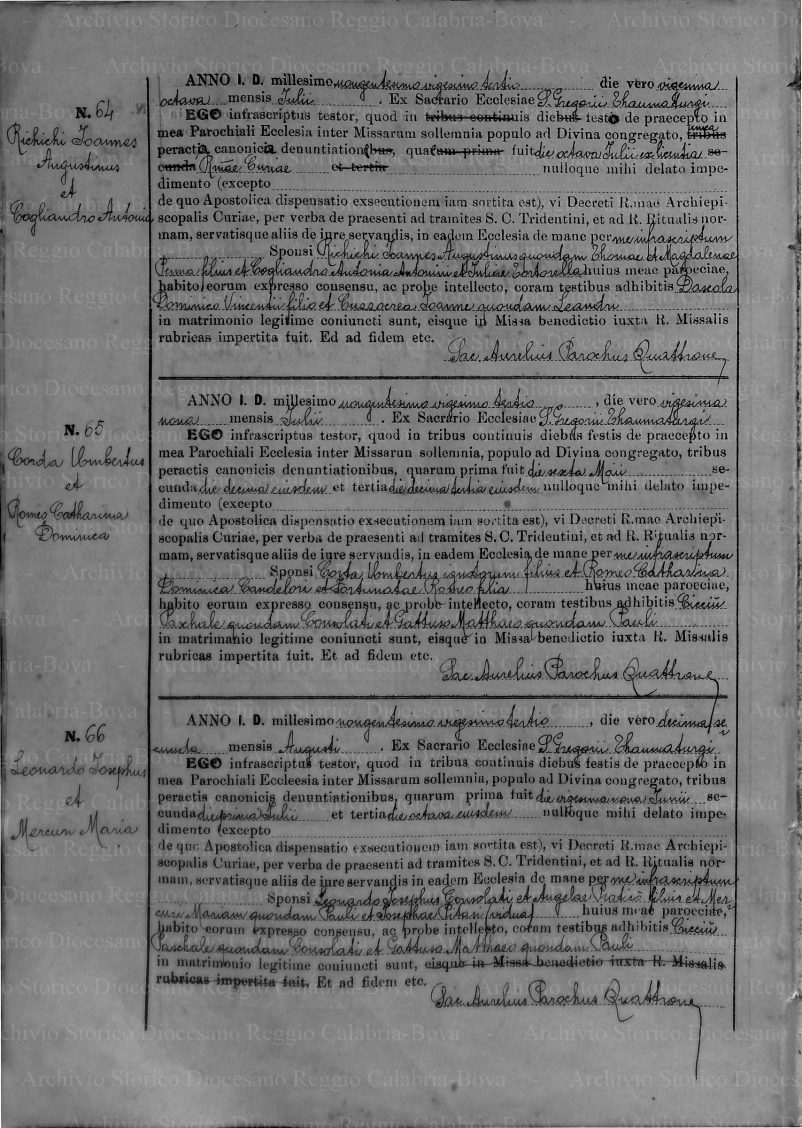 N. 64
Richichi Joannes
Augustinus
et
Cogliandro Antonia
ANNO I. D. millesimo nongentesimo vigesimo tertio die vero vigesima
octava mensis Julii. Ex Sacrario Ecclesiae S. Gregorii Thaumaturgi
EGO infrascriptus testor, quod in tribus continuis diebus testo de praecepto in
mea Parochiali Ecclesia inter Missarum sollemnia populo ad Divina congregato, tribus unica
peractia canonicia denuntiationibus, quarum prima fuit die octava Julii ex licentia se-
cunda Rmae Curiae et tertia nulloque mihi delato impe-
dimento (excepto
de quo Apostolica dispensatio exsecutionem iam sortita est), vi Decreti R.mac Archiepi-
scopalis Curiae, per verba de praesenti ad tramites S. C. Tridentini, et ad R. Ritualis nor-
mam, servatisque aliis de iure servandis, in eadem Ecclesia de mane per me infrascriptum
Sponsi Richichi Joannes Augustinus quondam Thomae et Magdalenae
Penna filius et Cogliandro Antonia Antonini et Juliae Tortorella huius meae paroeciae,
habito eorum expresso consensu, ac probe intellecto, coram testibus adhibitis Dascola
Dominico Vincentii filio et Cuzzocrea Joanne quondam Leandri
in matrimonio legitime coniuncti sunt, eisque in Missa benedictio iuxta R. Missalis
rubricas impertita fuit. Ed ad fidem etc.
Sac. Aurelius Parochus Quattrone
N. 65
Corda Umbertus
et
Romeo Catharina
Dominica
ANNO I. D. millesimo nongentesimo vigesimo tertio, die vero vigesima
nona mensis Julii. Ex Sacrario Ecclesiae S. Gregorii Thaumaturgi
EGO infrascriptus testor, quod in tribus continuis diebus festis de praecepto in
mea Parochiali Ecclesia inter Missarun sollemnia, populo ad Divina congregato, tribus
peractis canonicis denuntiationibus, quarum prima fuit die sexta Maii se-
cunda die decima eiusdem et tertia die decima tertia eiusdem nulloque mihi delato impe-
dimento (excepto
de quo Apostolica dispensatio exsecutionem iam sortita est), vi Decreti R.mac Archiepi-
scopalis Curiae, per verba de praesenti ad tramites S. C. Tridentini, et ad R. Ritualis nor-
mam, servatisque aliis de iure servandis, in eadem Ecclesia de mane per me infrascriptum
Sponsi Corda Umbertus ignotorum filius et Romeo Catharina
Dominica Candelori et Fortunatae Rosseo filia huius meae paroeciae,
habito eorum expresso consensu, ac probe intellecto, coram testibus adhibitis Cicciù
Paschale quondam Consolati et Gattuso Matthaeo quondam Pauli
in matrimonio legitime coniuncti sunt, eisque in Missa benedictio iuxta R. Missalis
rubricas impertita fuit. Et ad fidem etc.
Sac. Aurelius Parochus Quattrone
N. 66
Leonardo Josephus
et
Mercuri Maria
ANNO I. D. millesimo nongentesimo vigesimo tertio, die vero decima se
cunda mensis Augusti. Ex Sacrario Ecclesiae S. Gregorii Thaumaturgi
EGO infrascriptus testor, quod in tribus continuis diebus festis de praecepto in
mea Parochiali Eccleesia inter Missarum sollemnia, populo ad Divina congregato, tribus
peractis canonicis denuntiationibus, quarum prima fuit die vigesima nona Junii se-
cunda die prima Julii et tertia die octava eiusdem nulloque mihi delato impe-
dimento (excepto
de quo Apostolica dispensatio exsecutionem iam sortita est), vi Decreti R.mac Archiepi-
scopalis Curiae, per verba de praesenti ad tramites S. C. Tridentini, et ad R. Ritualis nor-
mam, servatisque aliis de iure servandis in eadem Ecclesia de mane per me infrascriptum
Sponsi Leonardo Josephus Consolati et Angelae Praticò filius et Mer
curi Mariam quondam Pauli et Josephae Pitasi vidua huius meae paroeciae,
habito eorum expresso consensu, ac probe intellecto, coram testibus adhibitis Cicciù
Paschale quondam Consolati et Gattuso Matthaeo quondam Pauli
in matrimonio legitime coniuncti sunt, eisque in Missa benedictio iuxta R. Missalis
rubricas impertita fuit. Et ad fidem etc.
Sac. Aurelius Parochus Quattrone